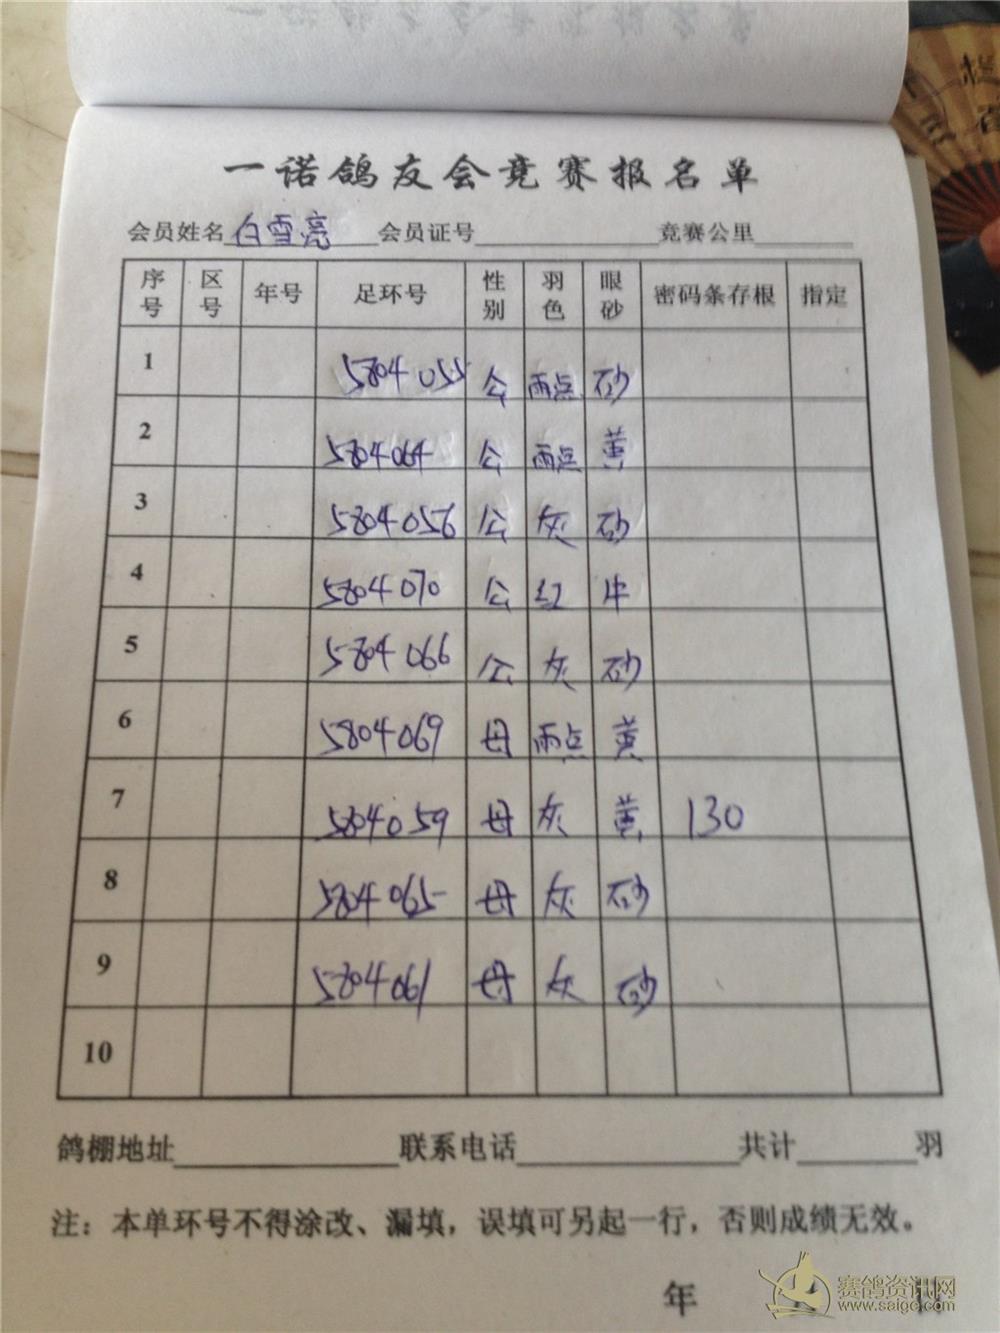 一诺鸽友会竞赛报名单
会员姓名 白雪亮 会员证号 竞赛公里
序号 区号 年号 足环号 性别 羽色 眼砂 密码条存根 指定
1 5804055 公 雨点 砂
2 5804064 公 雨点 黄
3 5804056 公 灰 砂
4 5804070 公 红 牛
5 5804066 公 灰 砂
6 5804069 母 雨点 黄
7 5804059 母 灰 黄 130
8 5804065 母 灰 砂
9 5804061 母 灰 砂
10
鸽棚地址 联系电话 共计 羽
注：本单环号不得涂改、漏填，误填可另起一行，否则成绩无效。
年
赛鸽资讯网
www.saige.com